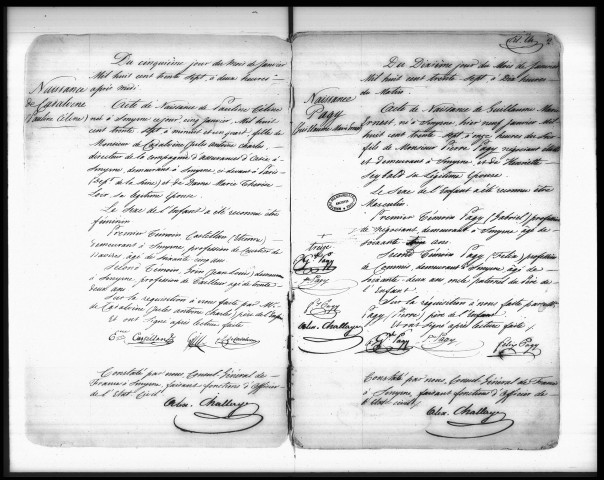 Du cinquième jour du mois de Janvier
Mil huit cent trente sept, à deux heures
après midi
Naissance
de Casalione
Pauline Céline
Acte de Naissance de Pauline Céline
née à Smyrne le jour cinq Janvier, Mil huit
cent trente sept à minuit et un quart, fille de
Monsieur de Casalione Jules antoine Charles,
directeur de la compagnie d'assurances d'Asie à
Smyrne, demeurant à Smyrne, ci-devant à Paris
(Dépt de la Seine) et de Dame Marie
sa légitime épouse.
Le Sexe de l'Enfant a été reconnu être
féminin
Premier Témoin Castellan
demeurant à Smyrne profession de
navires, âgé de soixante cinq ans
Second Témoin (Jean Louis) demeurant
à Smyrne, profession de Tailleur âgé de trente
deux ans
Sur la réquisition à nous faite par Mr
de Casalione (Jules antoine Charles) père de l'Enfant
Et ont Signé après lecture faite
Castellan
Constaté par nous, Consul Général de
France à Smyrne, faisant fonctions d'Officier
de l'Etat Civil
Alex. Challaye
2
Du Dixième jour du Mois de Janvier
Mil huit cent trente sept, à Dix heures
du Matin
Naissance
Pagy
Guillaume Marie Ernest
Acte de Naissance de Guillaume Marie
Ernest, né à Smyrne hier neuf Janvier Mil
huit cent trente sept à onze heures du Soir
fils de Monsieur Pierre Pagy négociant
et demeurant à Smyrne, et de Henriette
sa légitime épouse
Le Sexe de l'Enfant a été reconnu être
Masculin
Premier Témoin Pagy (Gabriel) profession
de négociant demeurant à Smyrne âgé de
soixante ans
treize
Second Témoin Pagy (Félix) profession
de Commis demeurant à Smyrne âgé de
soixante deux ans oncle paternel du père de
l'Enfant
Sur la réquisition à nous faite par
Pagy (Pierre) père de l'enfant
Et ont Signé après lecture faite
Gl Pagy
Pagy
Félix Pagy
Pagy
Alex. Challaye
Constaté par nous, Consul Général de France
à Smyrne, faisant fonction d'Officier de
l'Etat civil
Alex. Challaye